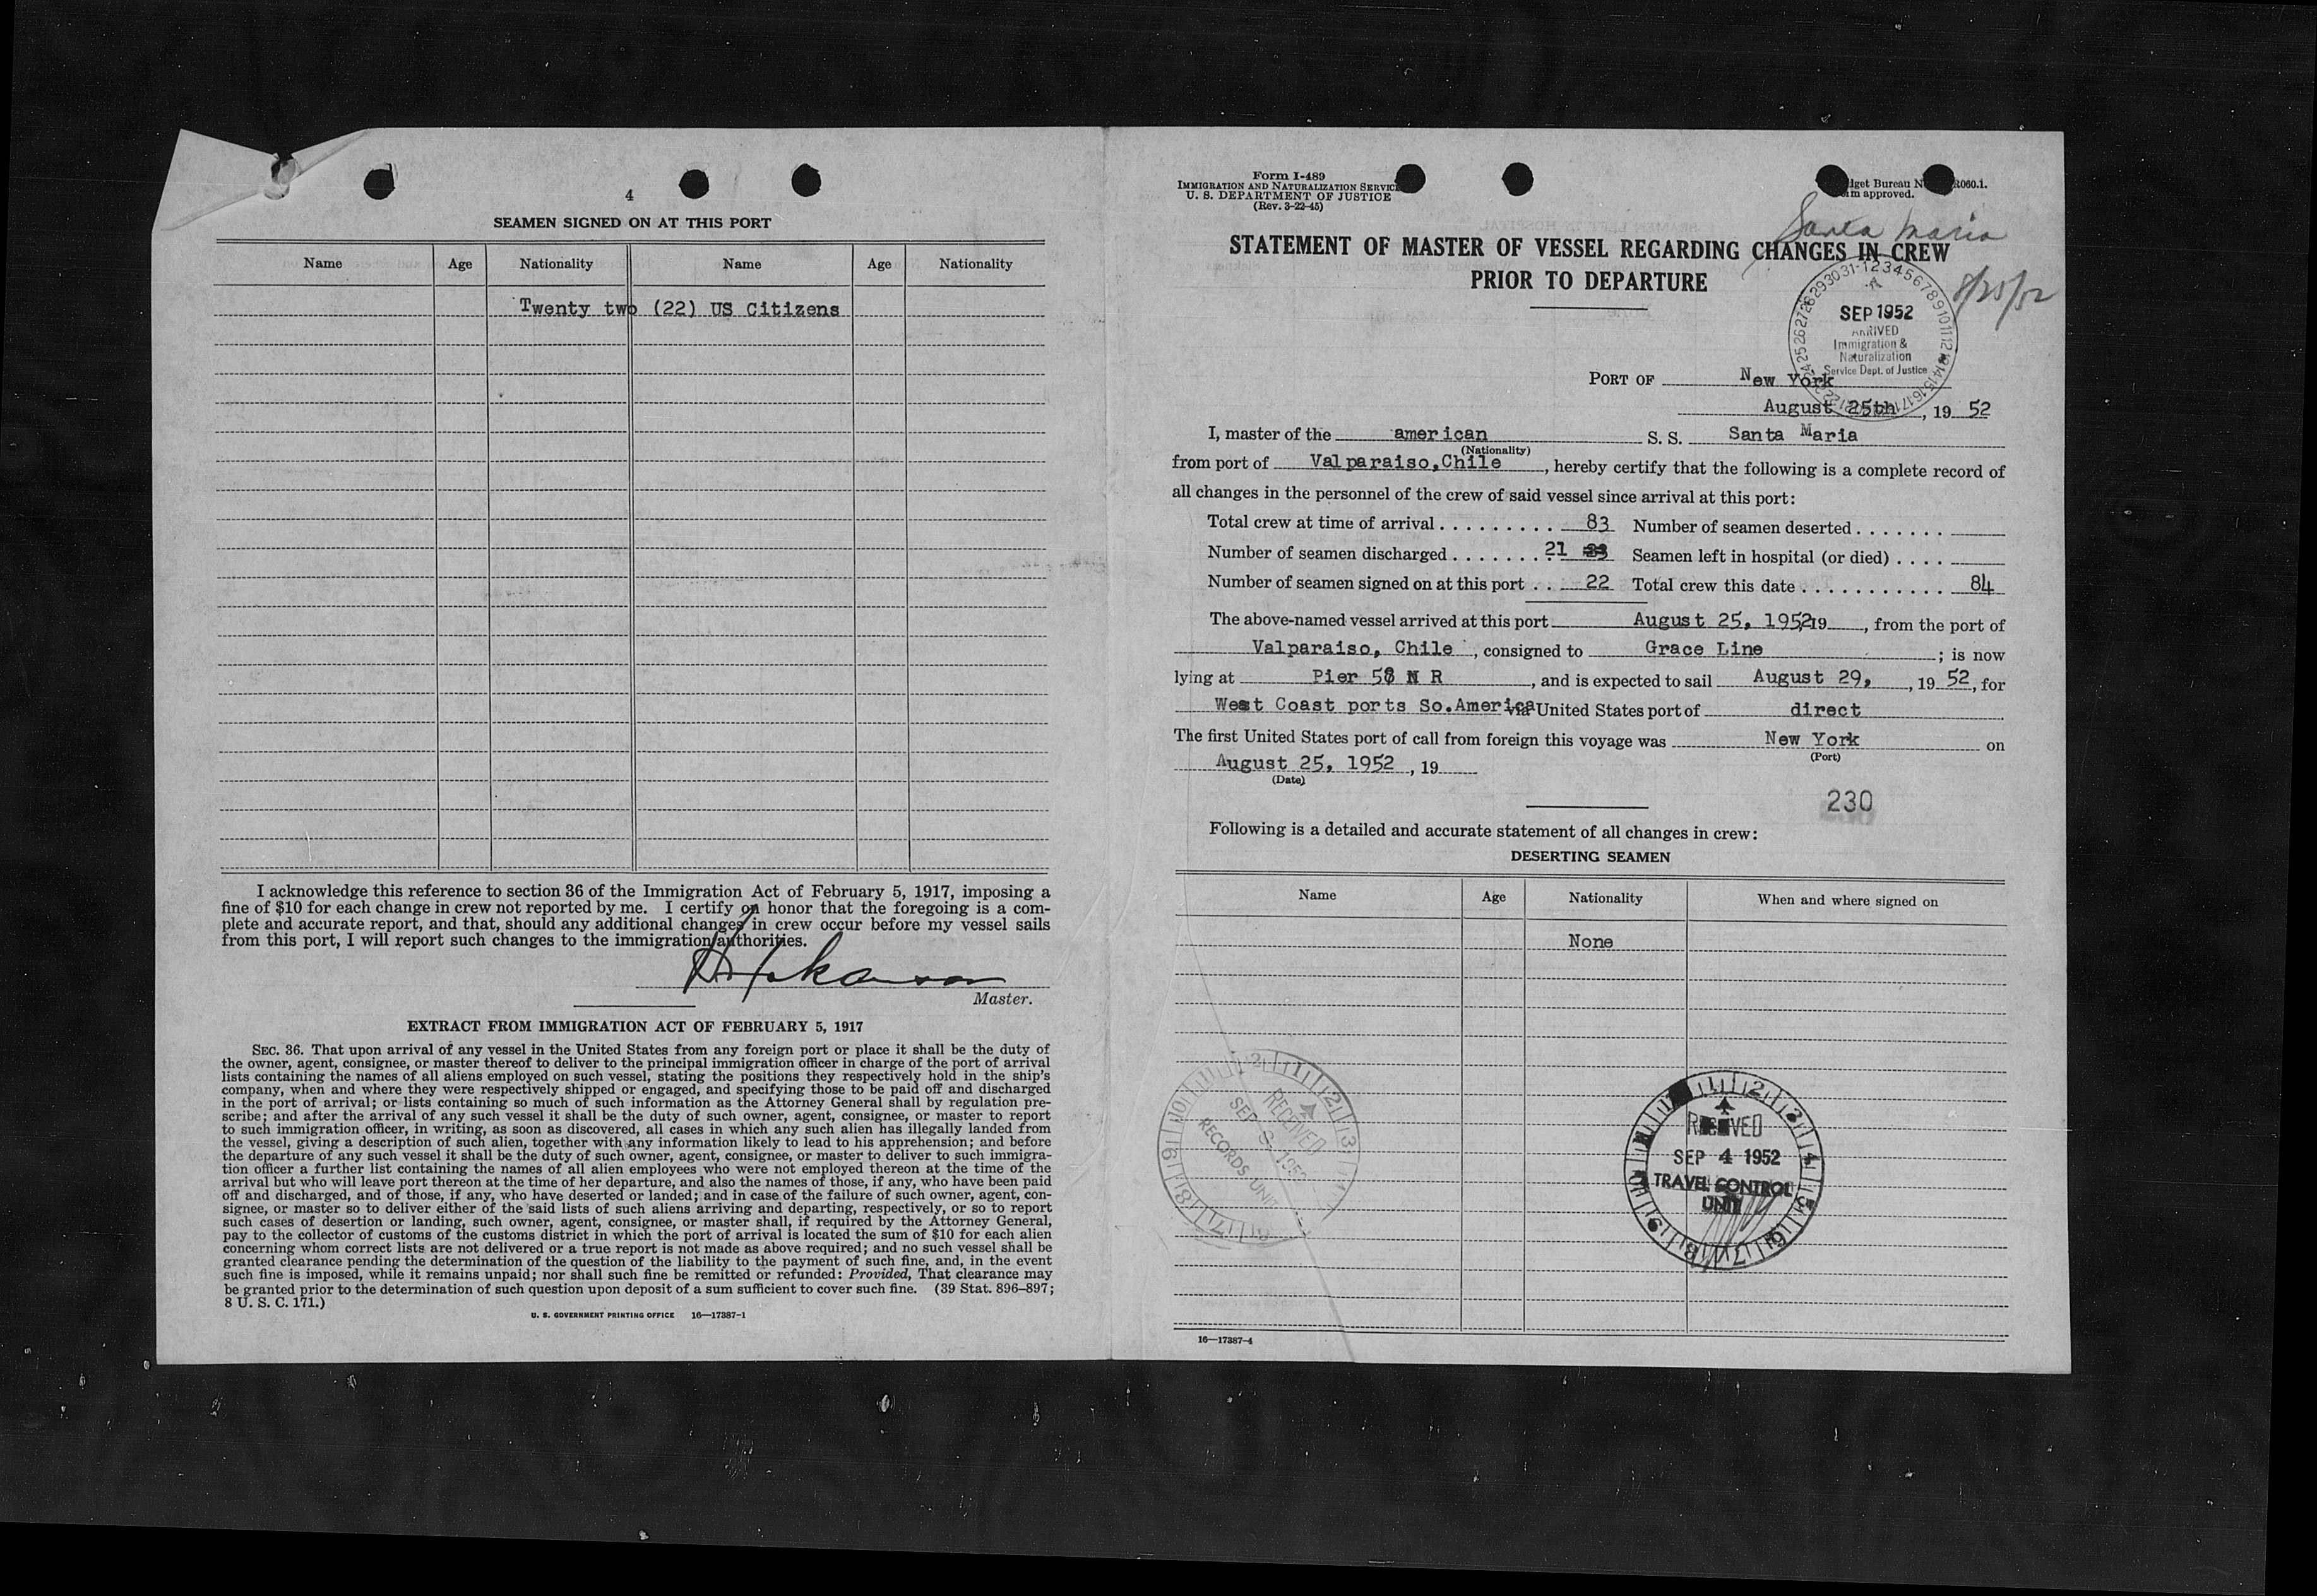 4
SEAMEN SIGNED ON AT THIS PORT
Name Age Nationality Name Age Nationality
Twenty two (22) US Citizens
I acknowledge this reference to section 36 of the Immigration Act of February 5, 1917, imposing a
fine of $10 for each change in crew not reported by me. I certify on honor that the foregoing is a com-
plete and accurate report, and that, should any additional changes in crew occur before my vessel sails
from this port, I will report such changes to the immigration authorities.
Master.
EXTRACT FROM IMMIGRATION ACT OF FEBRUARY 5, 1917
SEC. 36. That upon arrival of any vessel in the United States from any foreign port or place it shall be the duty of
the owner, agent, consignee, or master thereof to deliver to the principal immigration officer in charge of the port of arrival
lists containing the names of all aliens employed on such vessel, stating the positions they respectively hold in the ship's
company, when and where they were respectively shipped or engaged, and specifying those to be paid off and discharged
in the port of arrival; or lists containing so much of such information as the Attorney General shall by regulation pre-
scribe; and after the arrival of any such vessel it shall be the duty of such owner, agent, consignee, or master to report
to such immigration officer, in writing, as soon as discovered, all cases in which any such alien has illegally landed from
the vessel, giving a description of such alien, together with any information likely to lead to his apprehension; and before
the departure of any such vessel it shall be the duty of such owner, agent, consignee, or master to deliver to such immigra-
tion officer a further list containing the names of all alien employees who were not employed thereon at the time of the
arrival but who will leave port thereon at the time of her departure, and also the names of those, if any, who have been paid
off and discharged, and of those, if any, who have deserted or landed; and in case of the failure of such owner, agent, con-
signee, or master so to deliver either of the said lists of such aliens arriving and departing, respectively, or so to report
such cases of desertion or landing, such owner, agent, consignee, or master shall, if required by the Attorney General,
pay to the collector of customs of the customs district in which the port of arrival is located the sum of $10 for each alien
concerning whom correct lists are not delivered or a true report is not made as above required; and no such vessel shall be
granted clearance pending the determination of the question of the liability to the payment of such fine, and, in the event
such fine is imposed, while it remains unpaid; nor shall such fine be remitted or refunded: Provided, That clearance may
be granted prior to the determination of such question upon deposit of a sum sufficient to cover such fine. (39 Stat. 896–897;
8 U. S. C. 171.)
U. S. GOVERNMENT PRINTING OFFICE 16—17387-1
Form I-489
IMMIGRATION AND NATURALIZATION SERVICE
U. S. DEPARTMENT OF JUSTICE
(Rev. 3-22-45)
Bureau
approved.
Santa Maria
8/25/52
STATEMENT OF MASTER OF VESSEL REGARDING CHANGES IN CREW
PRIOR TO DEPARTURE
SEP 1952
ARRIVED
Immigration &
Naturalization
Service Dept. of Justice
PORT OF New York
August 25th, 19 52
I, master of the american S. S. Santa Maria
(Nationality)
from port of Valparaiso, Chile, hereby certify that the following is a complete record of
all changes in the personnel of the crew of said vessel since arrival at this port:
Total crew at time of arrival . . . . . . . . . 83 Number of seamen deserted . . . . . . .
Number of seamen discharged . . . . . . . 21 Seamen left in hospital (or died) . . . .
Number of seamen signed on at this port . . 22 Total crew this date . . . . . . . . . . . 84
The above-named vessel arrived at this port August 25, 1952, 19, from the port of
Valparaiso, Chile, consigned to Grace Line; is now
lying at Pier 58 N R, and is expected to sail August 29, , 19 52, for
West Coast ports So.America via United States port of direct
The first United States port of call from foreign this voyage was New York on
(Port)
August 25, 1952, 19
(Date)
230
Following is a detailed and accurate statement of all changes in crew:
DESERTING SEAMEN
Name Age Nationality When and where signed on
None
RECEIVED
SEP 1952
RECORDS UNIT
RECEIVED
SEP 4 1952
TRAVEL CONTROL
UNIT
16—17387-4